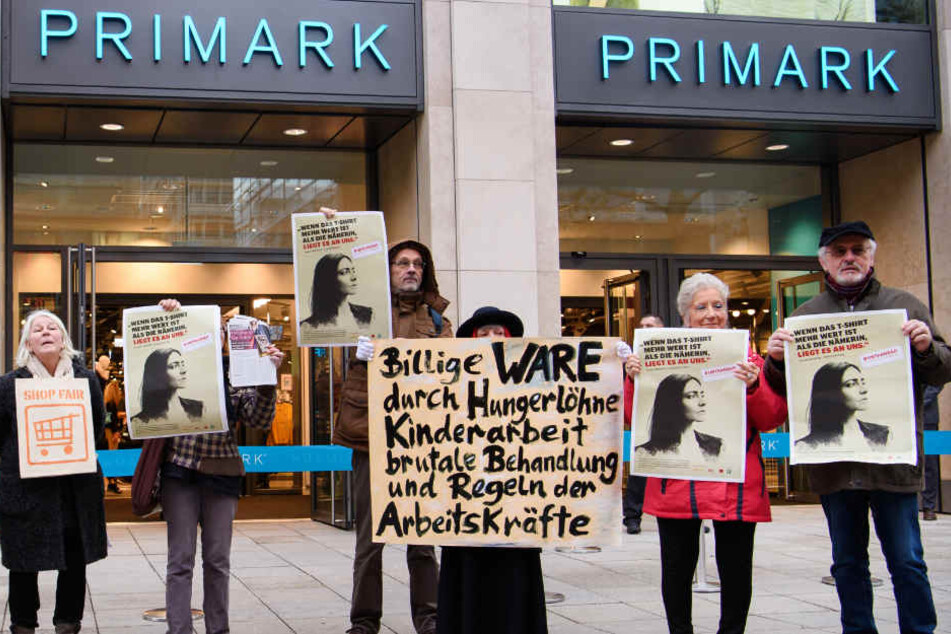 PRIMARK
PRIMARK
„WENN DAS T-SHIRT
MEHR WERT IST
ALS DIE NÄHERIN,
LIEGT ES AN UNS.“
SHOP FAIR
„WENN DAS T-SHIRT
MEHR WERT IST
ALS DIE NÄHERIN,
LIEGT ES AN UNS.“
Billige WARE
durch Hungerlöhne
Kinderarbeit
brutale Behandlung
und Regeln der
Arbeitskräfte
„WENN DAS T-SHIRT
MEHR WERT IST
ALS DIE NÄHERIN,
LIEGT ES AN UNS.“
„WENN DAS T-SHIRT
MEHR WERT IST
ALS DIE NÄHERIN,
LIEGT ES AN UNS.“